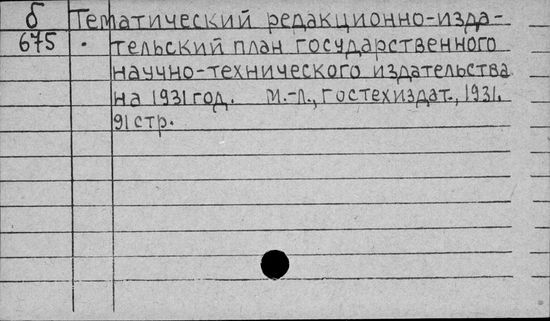 б Тематический редакционно-изда-
675 тельский план государственного
научно-технического издательства
на 1931 год. М.-Л., Гостехиздат., 1931.
91 стр.